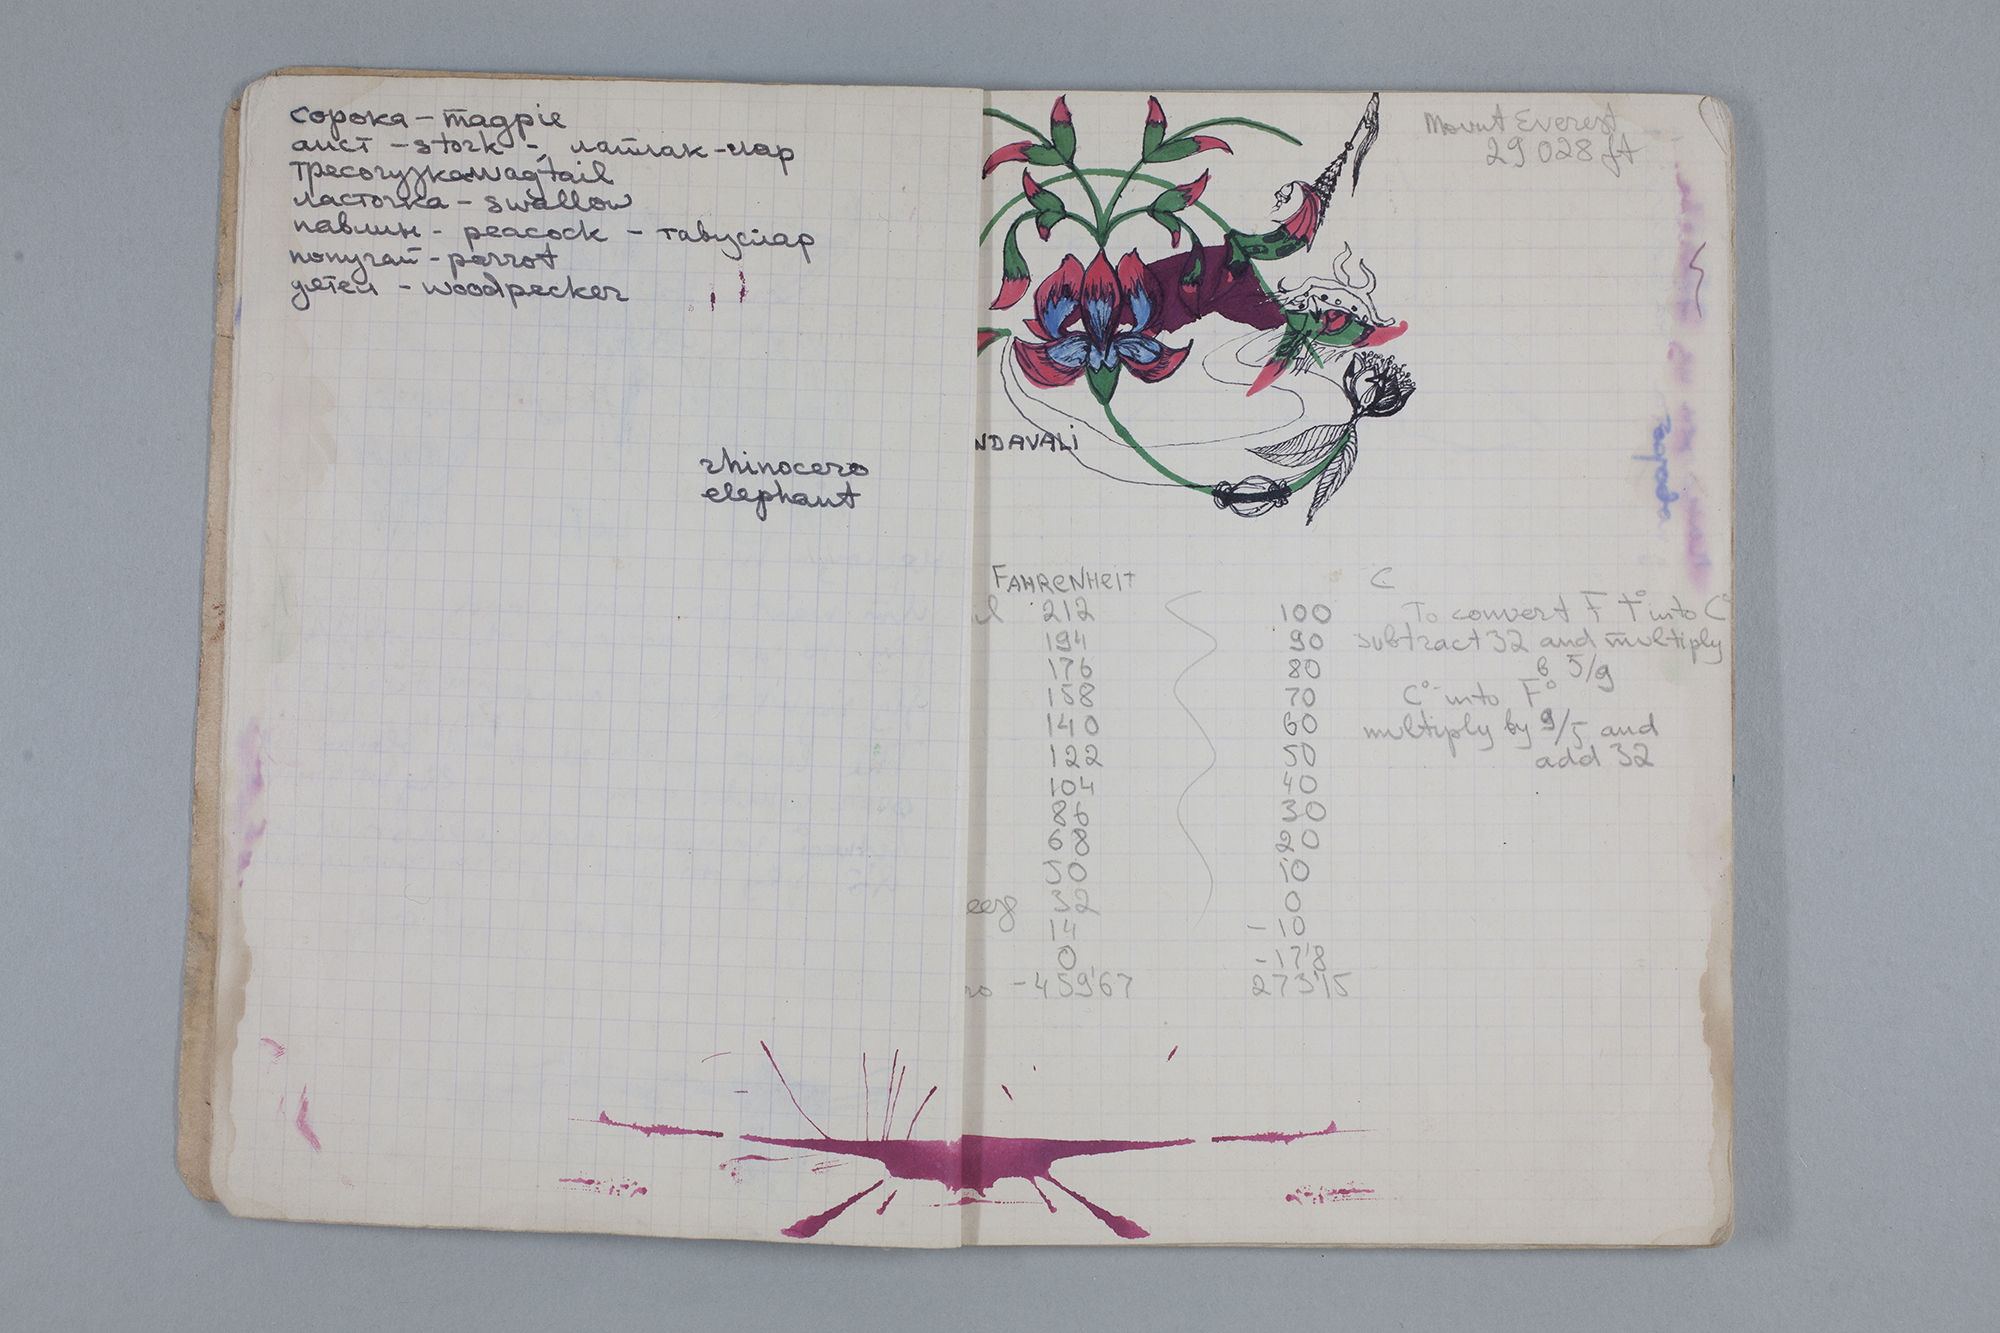 сорока – magpie
аист – stork –, лайлак-лар
трясогузка wagtail
ласточка – swallow
павлин – peacock – тавуслар
попугай – parrot
дятел – woodpecker
rhinocero
elephant
Mount Everest
29 028 ft
NDAVALI
FAHRENHEIT C
212 100
194 90
176 80
158 70
140 60
122 50
104 40
86 30
68 20
50 10
32 0
14 –10
0 –17'8
–459'67 273'15
To convert F t° into C°
subtract 32 and multiply
в 5/9
C° into F°
multiply by 9/5 and
add 32